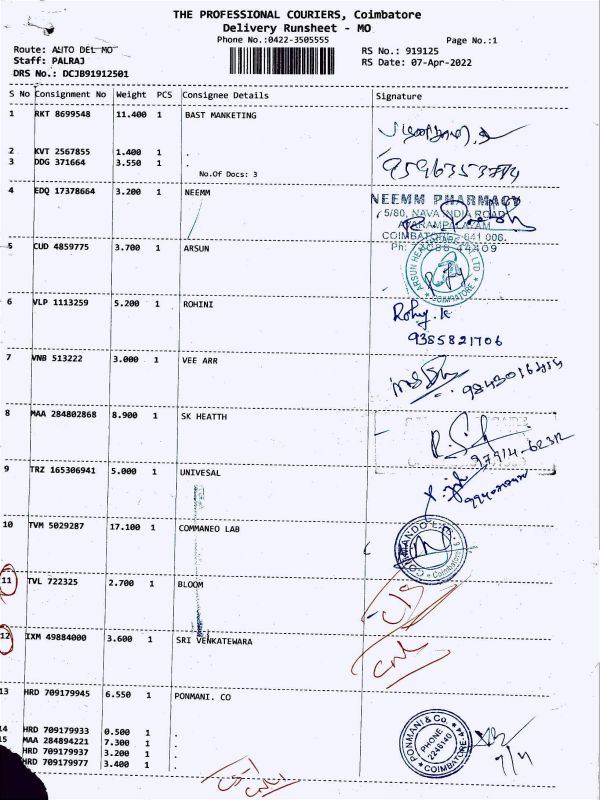 THE PROFESSIONAL COURIERS, Coimbatore
Delivery Runsheet - MO
Phone No.:0422-3505555
Page No.:1
Route: AUTO DEL MO
Staff: PALRAJ
DRS No.: DCJB91912501
RS No.: 919125
RS Date: 07-Apr-2022
S No Consignment No Weight PCS Consignee Details Signature
1 RKT 8699548 11.400 1 BAST MANKETING
2 KVT 2567855 1.400 1 .
3 DDG 371664 3.550 1 .
No.Of Docs: 3
4 EDQ 17378664 3.200 1 NEEMM
NEEMM PHARMACY
5/80, NAVA INDIA ROAD
AVARAMPALAYAM
COIMBATORE - 641 006.
5 CUD 4859775 3.700 1 ARSUN
6 VLP 1113259 5.200 1 ROHINI
Rohy.k
9385821706
7 VNB 513222 3.000 1 VEE ARR
8 MAA 284802868 8.900 1 SK HEATTH
9 TRZ 165306941 5.000 1 UNIVESAL
10 TVM 5029287 17.100 1 COMMANEO LAB
11 TVL 722325 2.700 1 BLOOM
12 IXM 49884000 3.600 1 SRI VENKATEWARA
13 HRD 709179945 6.550 1 PONMANI. CO
PONMANI & Co.
PHONE
2246140
COIMBATORE-44
14 HRD 709179933 0.500 1 .
15 MAA 284894221 7.300 1 .
HRD 709179937 3.200 1 .
HRD 709179977 3.400 1 .